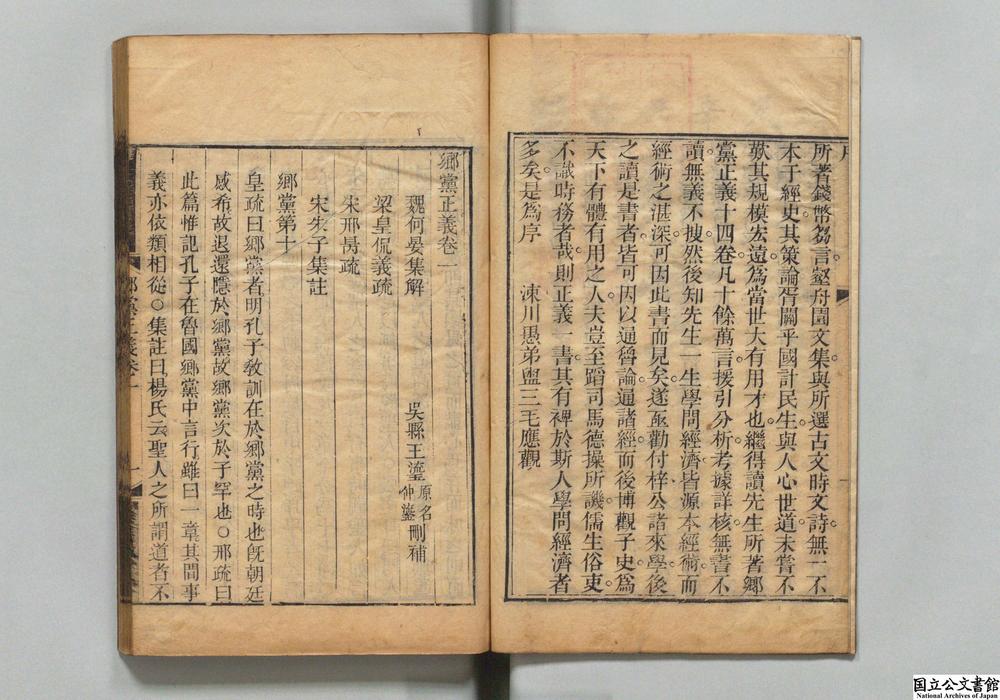 所著錢幣芻言壑舟園文集與所選古文時文詩無一不
本于經史其策論胥關乎國計民生與人心世道未嘗不
歎其規模宏遠為當世大有用才也繼得讀先生所著鄉
黨正義十四卷凡十餘萬言援引分析考據詳核無書不
讀無義不搜然後知先生一生學問經濟皆源本經術而
經術之湛深可因此書而見矣遂亟勸付梓公諸來學後
之讀是書者皆可因以通魯論通諸經而後博觀子史為
天下有體有用之人夫豈至蹈司馬德操所譏儒生俗吏
不識時務者哉則正義一書其有裨於斯人學問經濟者
多矣是為序　　涑川愚弟盥三毛應觀
鄉黨正義卷一
魏何晏集解　　吳縣王瀅原名仲鎏刪補
梁皇侃義疏
宋邢昺疏
宋朱子集註
鄉黨第十
皇疏曰鄉黨者明孔子教訓在於鄉黨之時也既朝廷
感希故退還隱於鄉黨故鄉黨次於子罕也○邢疏曰
此篇惟記孔子在魯國鄉黨中言行雖曰一章其間事
義亦依類相從○集註曰楊氏云聖人之所謂道者不
鄉黨正義卷一
一
国立公文書館
National Archives of Japan